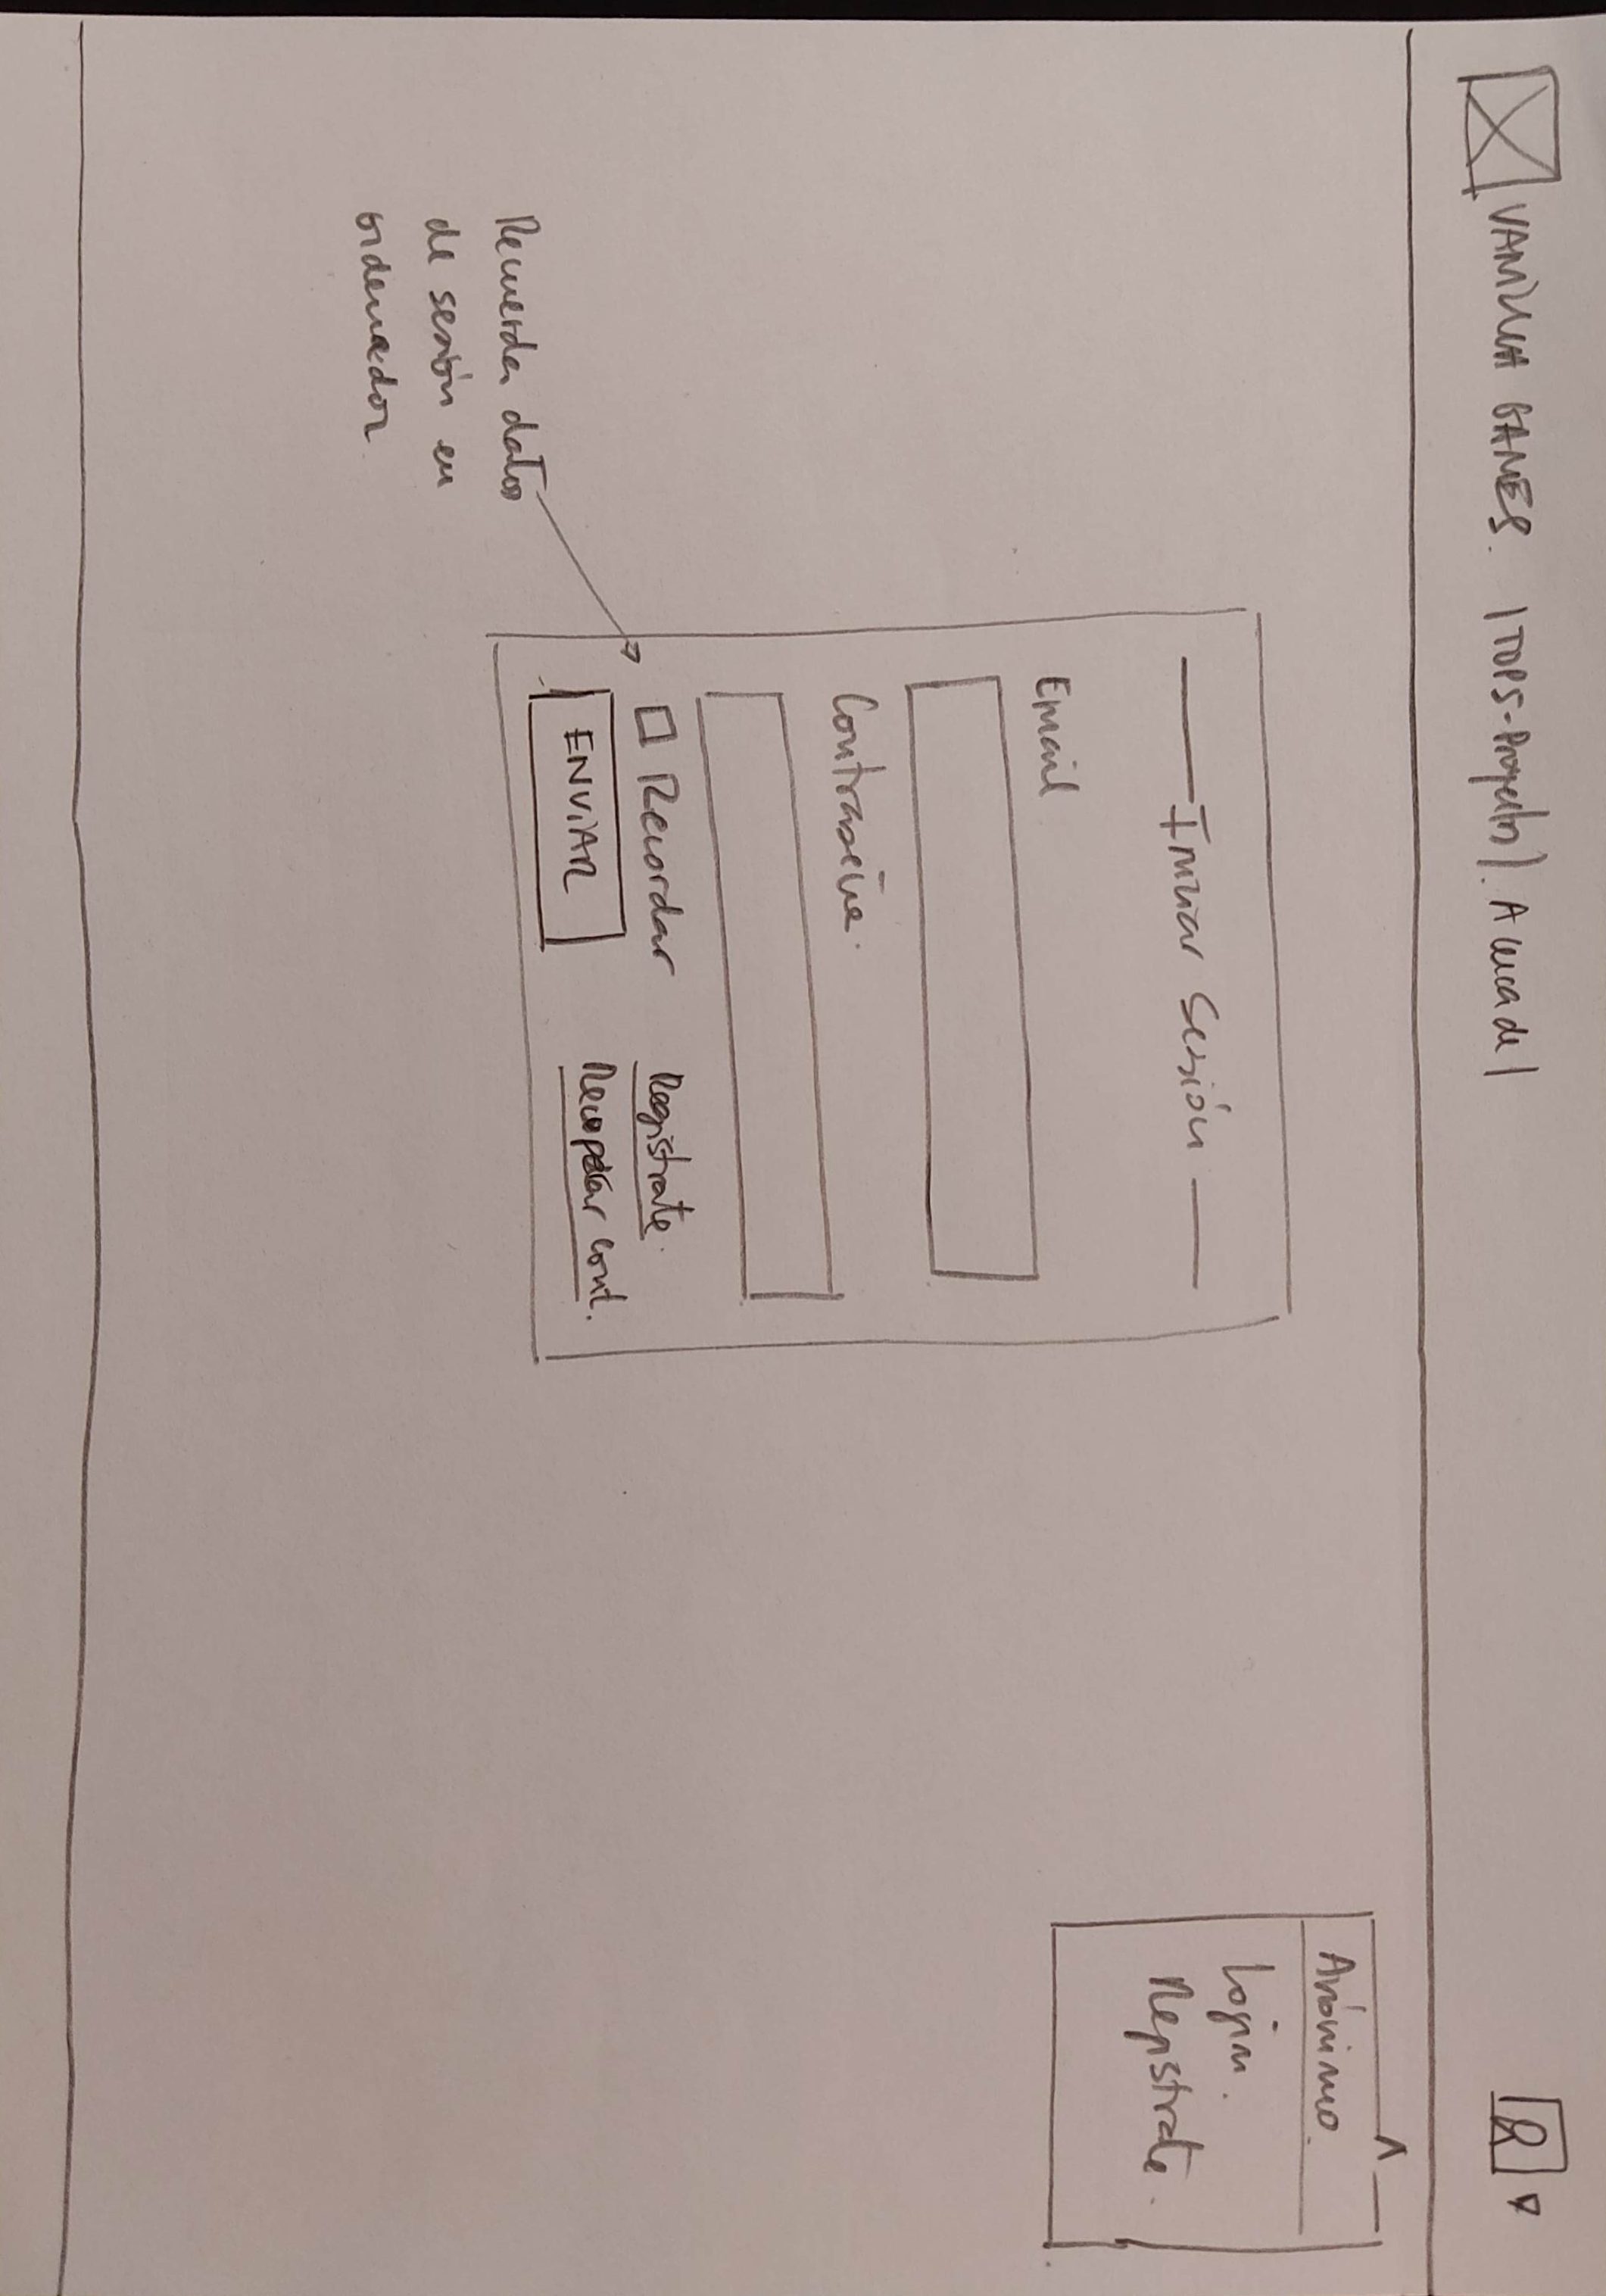 VANILLA GAMES. | TOP5-Proyectos |. Acerca de |
Anónimo.
Login.
Registrate.
Iniciar Sesión
Email
Contraseña.
Recordar
Registrate.
ENViAR
Recuperar cont.
Recuerda datos
de sesión en
ordenador